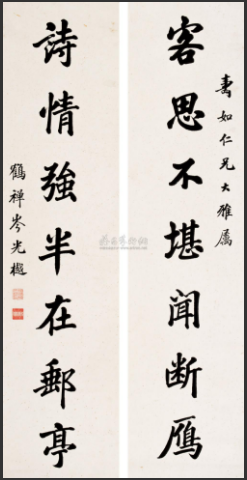 壽如仁兄大雅屬
客思不堪闻断鴈
詩情強半在郵亭
鶴禅岑光樾